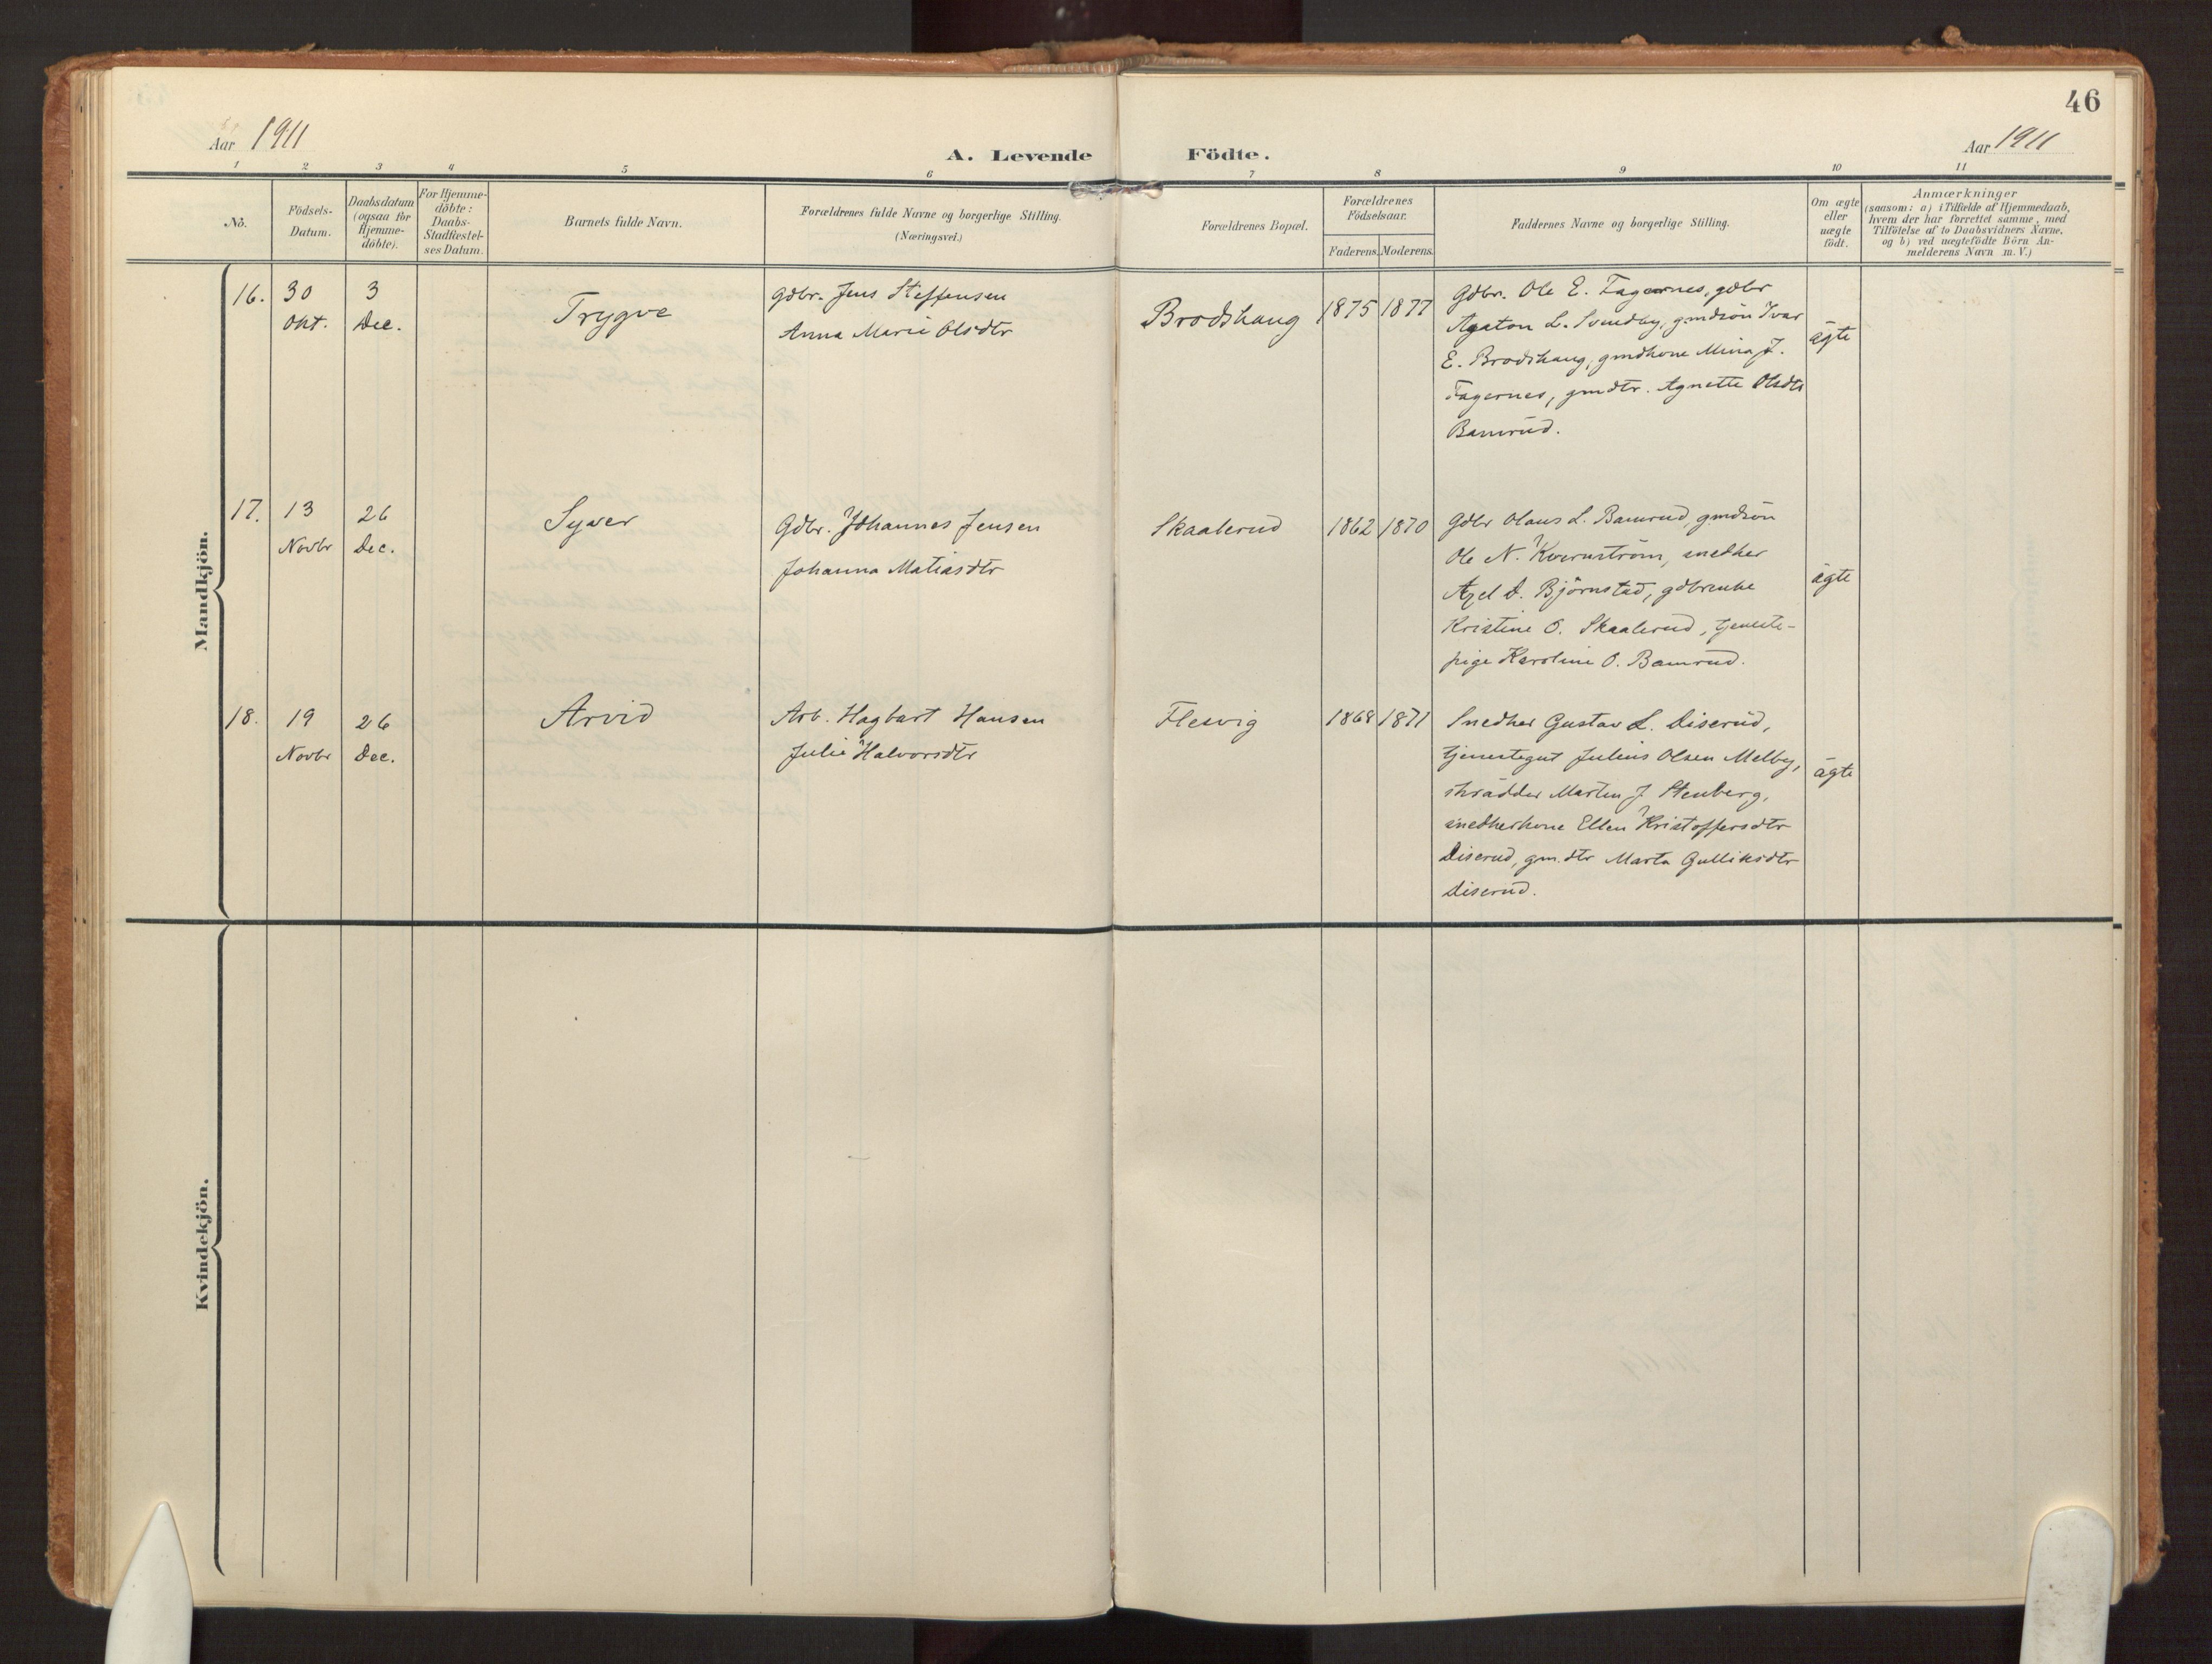 46
Aar 1911
A. Levende Födte.
Aar 1911
1 2 3 4 5 6 7 8 9 10 11
Nö.
Födsels-
Datum.
Daabsdatum
(ogsaa for
Hjemme-
döbte).
For Hjemme-
döbte:
Daabs-
Stadfestel-
ses Datum.
Barnets fulde Navn.
Forældrenes fulde Navne og borgerlige Stilling.
(Næringsvei.)
Forældrenes Bopæl.
Forældrenes
Födselsaar.
Faderens. Moderens.
Faddernes Navne og borgerlige Stilling.
Om ægte
eller
uægte
födt.
Anmærkninger
(saasom: a) i Tilfælde af Hjemmedaab,
hvem der har forrettet samme, med
Tilföielse af to Daabsvidners Navne,
og b) ved uægtefödte Börn An-
melderens Navn m. V.)
Mandkjön.
16.
30
Okt.
3
Dec.
Trygve
Gdbr. Jens Steffensen
Anna Marie Olsdtr
Brodshaug
1875 1877
Gdbr. Ole E. Fagernes, gdbr
Agaton L. Sundby, gmdsön Ivar
E. Brodshaug, gmdkone Mina J.
Fagernes, gmdtr. Agnette Olsdtr
Bamrud.
ägte
17.
13
Novbr
26
Dec.
Syver
Gdbr. Johannes Jensen
Johanna Matiasdtr
Skaalerud
1862 1870
Gdbr Olaus L. Bamrud, gmdsön
Ole N. Kvernström, snedker
Axel D. Björnstad, gdbrenke
Kristine O. Skaalerud, tjeneste-
pige Karoline O. Bamrud.
ägte
18.
19
Novbr
26
Dec.
Arvid
Arb. Hagbart Hansen
Julie Halvorsdtr
Flesvig
1868 1871
Snedker Gustav L. Diserud,
tjenestegut Julius Olsen Melby,
skrädder Martin J. Stenberg,
snedkerkone Ellen Kristoffersdtr
Diserud, gm.dtr Marta Gulliksdtr
Diserud.
ägte
Kvindekjön.